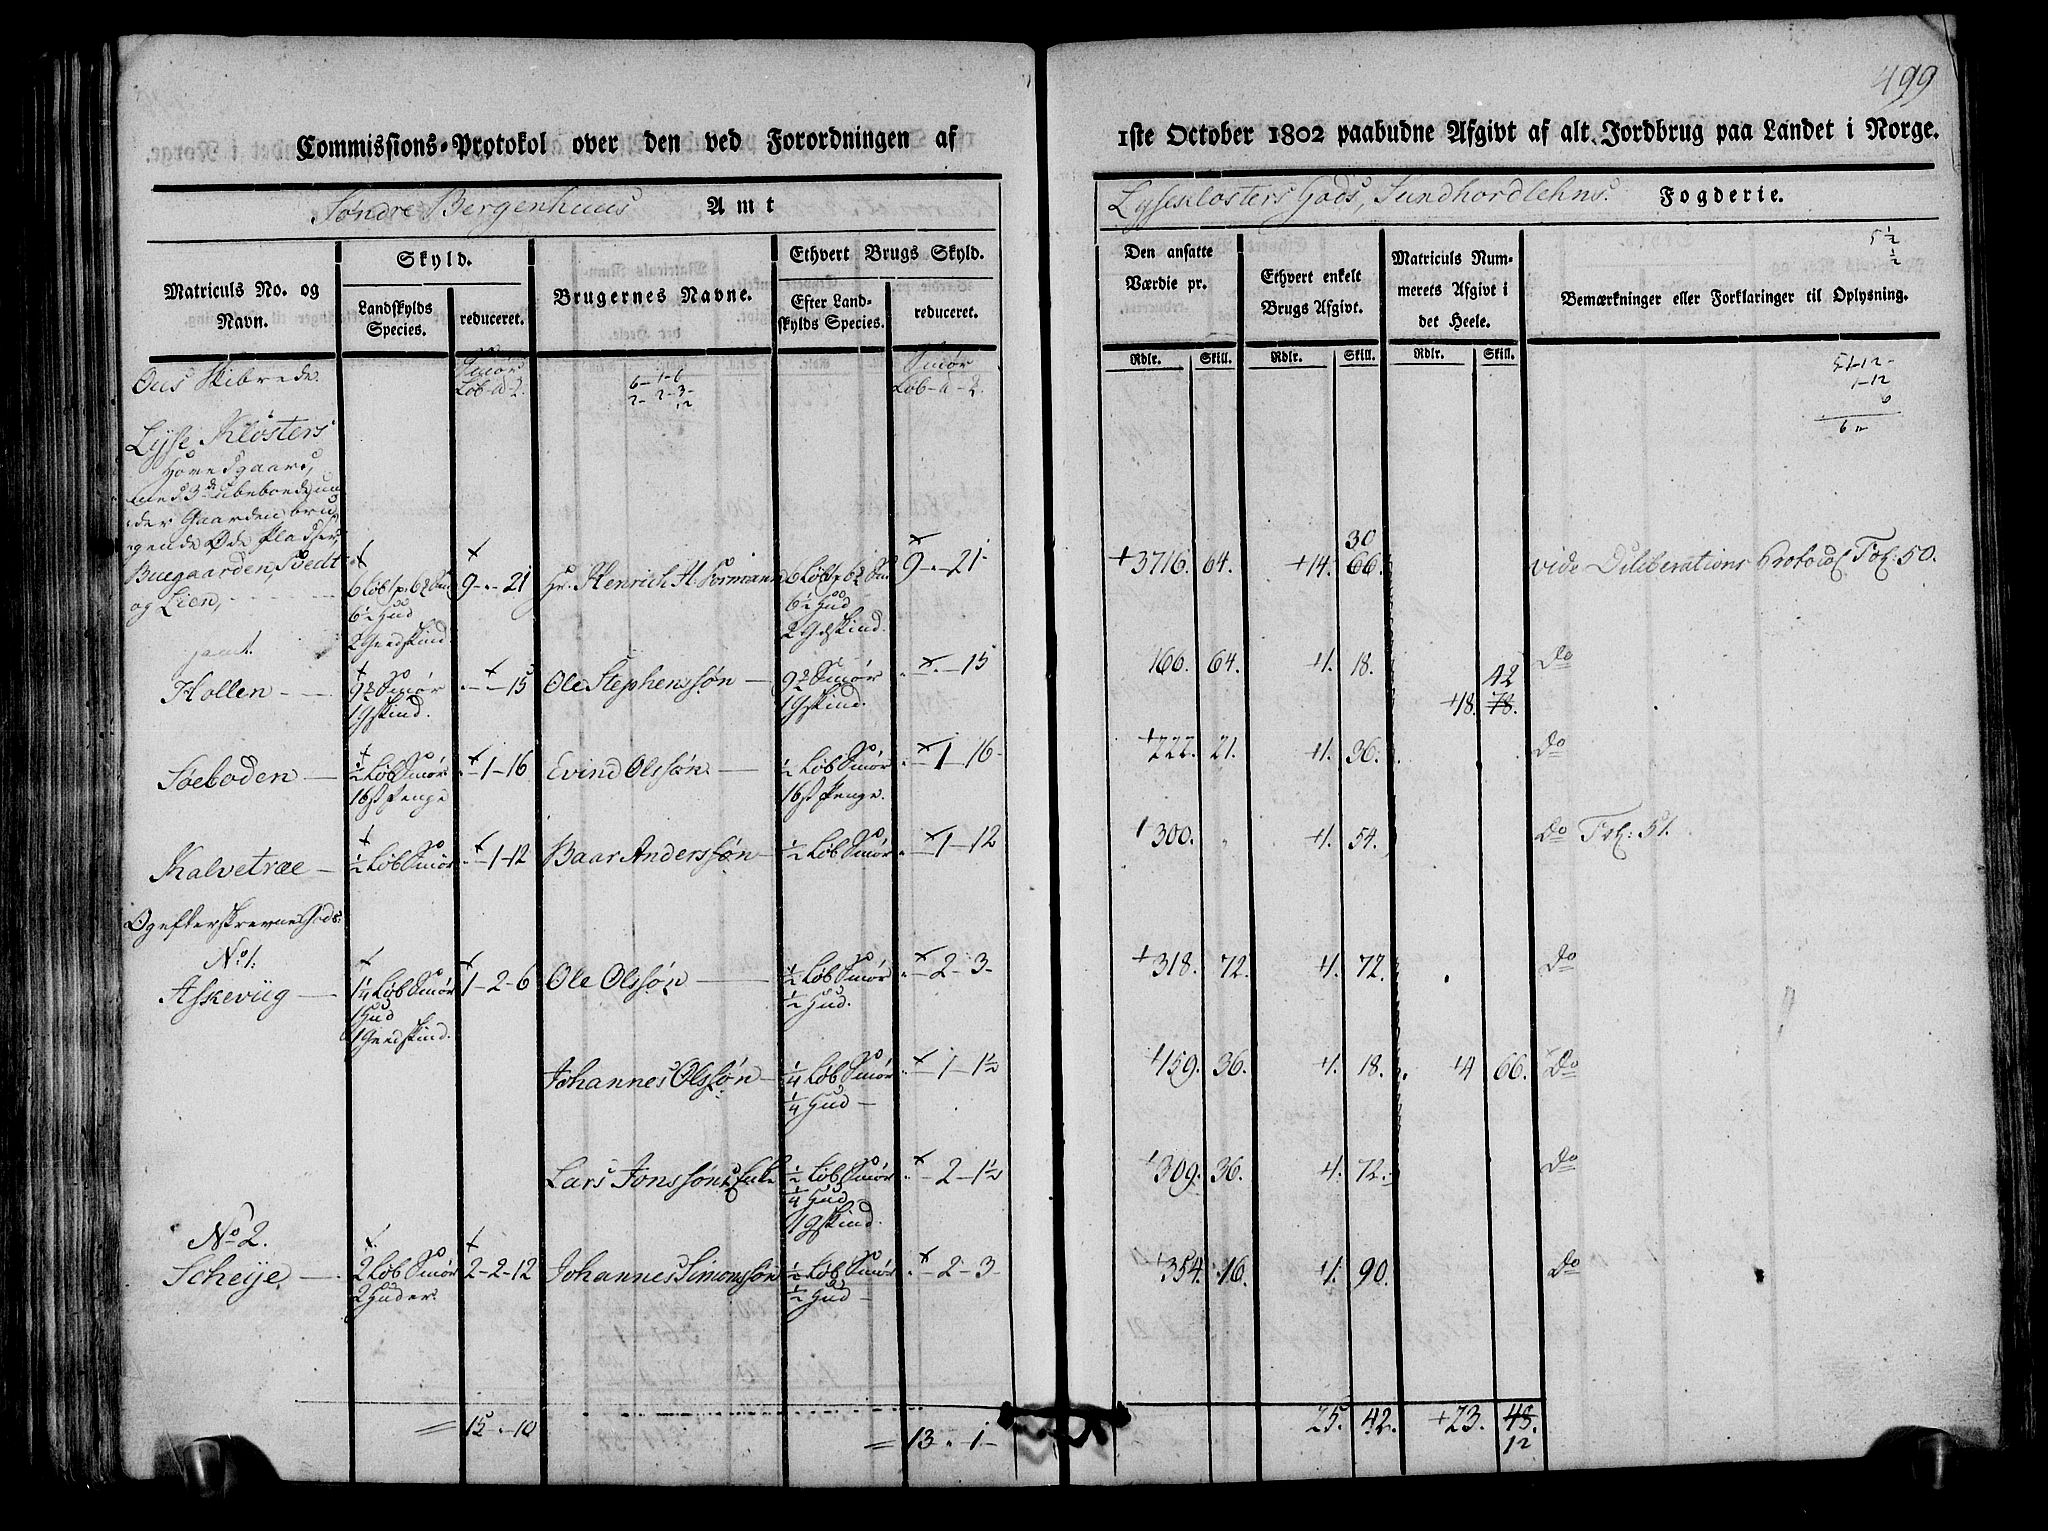 499
Commissions-Protokol over den ved Forordningen af 1ste October 1802 paabudne Afgivt af alt Jordbrug paa Landet i Norge.
Søndre Bergenhuus Amt
Lyseklosters Gods, Sundhordlehns. Fogderie.
Matriculs No. og Navn.
Skyld.
Landskylds Species.
reduceret.
Brugernes Navne.
Ethvert Brugs Skyld.
Efter Landskylds Species.
reduceret.
Den ansatte Værdie pr.
Ethvert enkelt Brugs Afgivt.
Matriculs Nummerets Afgivt i det Heele.
Bemærkninger eller Forklaringer til Oplysning.
5 1/2
1/2
Rdlr. Skill. Rdlr. Skill. Rdlr. Skill.
Ous Skibrede.
Smør
Smør
6-1-6
2-2-3-
12
51-12-
1-12
6
6 "
Lysse Klosters
Hovedgaard,
med 3de ubeboede un
der Gaarden bru
gende Øde Pladser,
Buegaarden, Tvedt
og Lien,
6 1/2 Hud
2 Giedskind
9-"-21
Hr. Henrich H. Formann
6 1/2 Hud
2 Gdskind.
9-"-21-
+3716. 64. +14. 30 66. vide Deliberations Protocol Fol: 50.
samt.
Hollen - 9 Smør "-"-15 Ole Stephenssøn - 9 Smør "-"-15 166. 64. 1. 18. Do
1 Gskind.
1 Gskind.
42
+18. 78.
Søeboden - 1/2 Løb Smør "-1-16 Evind Olssøn. - 1/2 Løb Smør "-1-16- +222. 21. 1. 36. Do
16 s Penge
16 s Penge.
Kalvetræe - 1/2 Løb Smør "-1-12 Baar Anderssøn - 1/2 Løb Smør "-1-12 +300. " 1. 54. Do Fol: 51.
Og efterskrevne Gods:
No 1.
Askeviig - 1 1/4 Løb Smør 1-2-6 Ole Olssøn - 1/2 Løb Smør "-2-3- +318. 72. 1. 72. Do
1 Hud
1 Giedskind.
1/2 Hud.
Johannes Olssøn - 1/4 Løb Smør "-1-1 1/2 159. 36. 1. 18. +4 66. Do
1/4 Hud -
Lars Jonssøns Enke 1/2 Løb Smør "-2-1 1/2 +309. 36. 1. 72. Do
1/4 Hud
1 Gskind.
No 2.
Scheije - 2 Løb Smør 2-2-12 Johannes Simonssøn 1/2 Løb Smør "-2-3- +354. 16. 1. 90. Do
2 Huder.
1/2 Hud -
= 15-"-10 = 13-"-1- 25. 42. +23. 48.
12